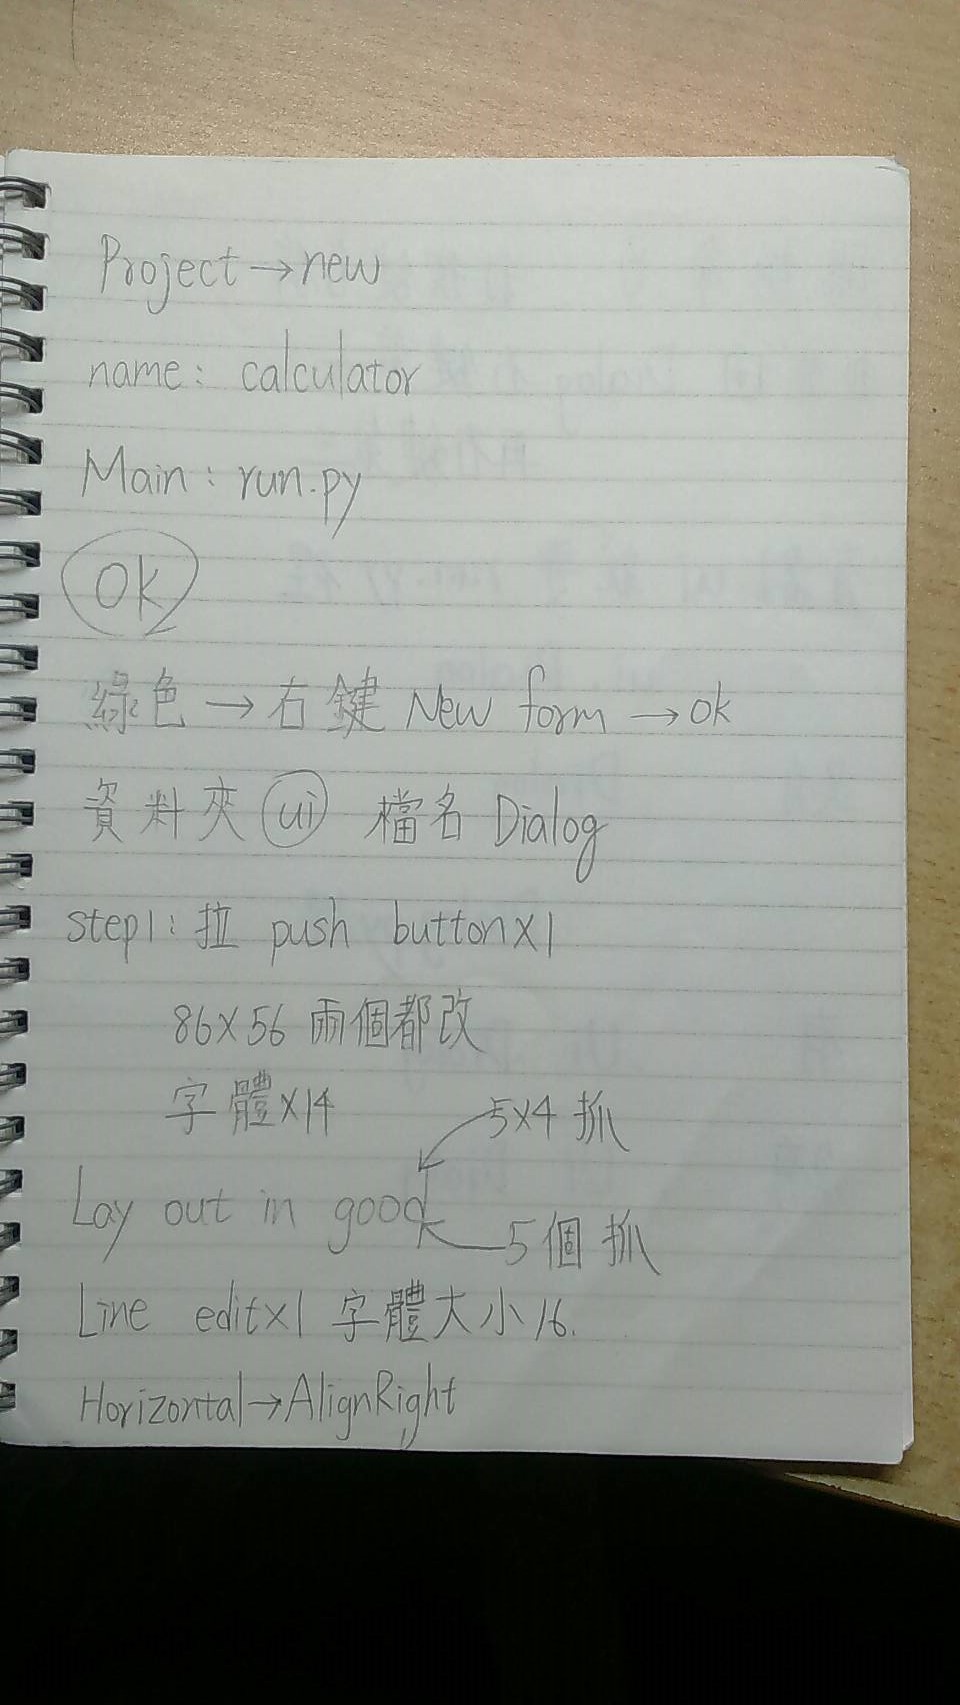 Project→new
name: calculator
Main: run.py
ok
綠色→右鍵 New form→ok
資料夾 ui 檔名 Dialog
step1: 拉 push button×1
86×56 兩個都改
字體×14
5×4 抓
Lay out in good
5個抓
Line edit×1 字體大小16.
Horizontal→AlignRight